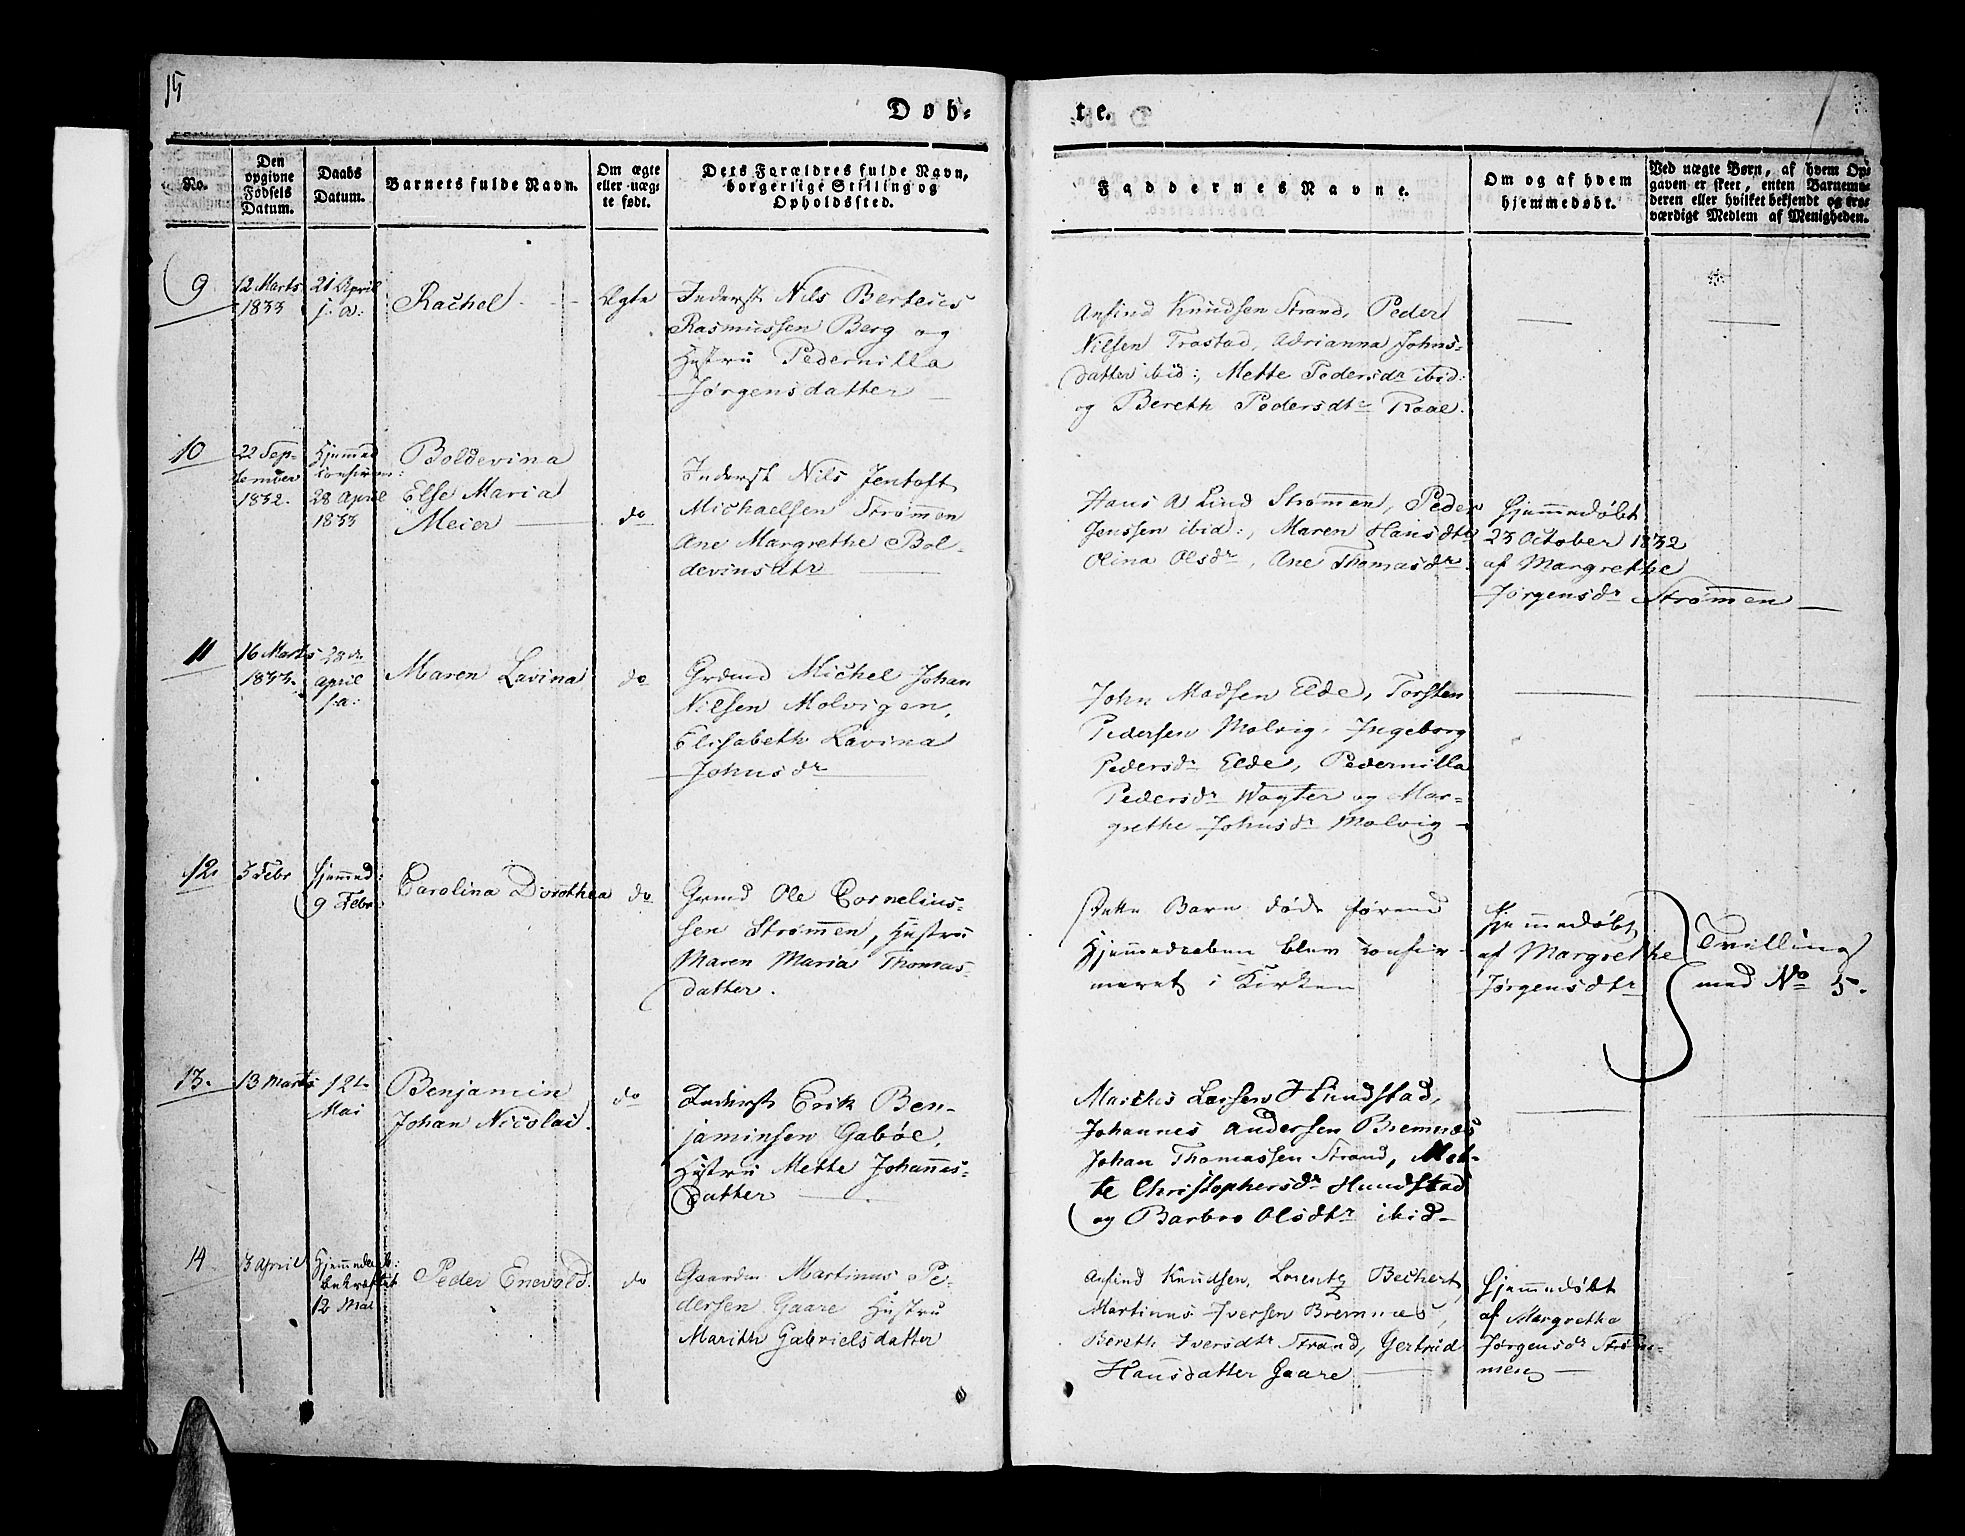 15
Døb-
te.
No.
Den opgivne Fødsels Datum.
Daabs Datum.
Barnets fulde Navn.
Om ægte eller uægte født.
Dets Forældres fulde Navn, borgerlige Stilling og Opholdssted.
Faddernes Navne.
Om og af hvem hjemmedøbt.
Ved uægte Børn, af hvem Opgaven er skeet, enten Barnemoderen eller hvilket bekjendt og troværdigt Medlem af Menigheden.
9
12 Marts
1833
21 April
j. a.
Rachel
Ægte
Inderst Nils Berteus
Rasmussen Berg og
Hustru Pedernilla
Jørgensdatter
Anfind Knudsen Strand, Peder
Nilsen Trastad, Adrianna Johns-
datter ibid:, Mette Pedersdr ibid:
og Bereth Pedersdtr Raae.
10
22 Sep-
tember
1832.
Hjemmed
confirm:
28 April
1833
Boldevina
Else Maria
Meier
do
Inderst Nils Jentoft
Michaelsen Strømmen
Ane Margrethe Bol-
devinsdtr
Hans A Lind Strømmen, Peder
Jenssen ibid:, Maren Hansdtr
Olina Olsdr, Ane Thomasdr
Hjemmedøbt
23 October 1832
af Margrethe
Jørgensdr Strømmen
11
16 Marts
1833.
28de
April
s.a:
Maren Lavina
do
Grdmd Michel Johan
Nilsen Molvigen,
Elisabeth Lavina
Johnsdr
John Madsen Elde, Torsten
Pedersen Molvig, Ingeborg
Pedersdr Elde, Pedernilla
Pedersdr Wogter og Mar-
grethe Johnsdr Molvig
12
3 Febr
Hjemmed:
9 Febr.
Carolina Dorothea
do
Grmd Ole Cornelius-
sen Strømmen, Hustru
Maren Maria Thomas-
datter.
Dette Barn døde førend
Hjemmedaaben blev confir-
meret i Kirken
Hjemmedøbt
af Margrethe
Jørgensdtr
Tvilling
med No 5.
13.
13 Marts
12te
Mai
Benjamin
Johan Nicolai.
do
Inderst Erik Ben-
jaminsen Gabøe,
Hustru Mette Johannes-
datter
Mathis Larsen Hundstad,
Johannes Andersen Bremnæs
Johan Thomassen Strand, Met-
te Christophersdr Hundstad
og Barbro Olsdtr ibid
14
3 April
Hjemmedaab:
bekræftet
12 Mai
Peder Enevold.
do
Gaardm Martinus Pe-
dersen Gaare Hustru
Marith Gabrielsdatter
Anfind Knudsen, Lorentz Bechert,
Martinus Iversen Bremnæs,
Bereth Iversdtr Strand, Gertrud
Hansdatter Gaare
Hjemmedøbt
af Margrethe
Jørgensdr Strøm-
men